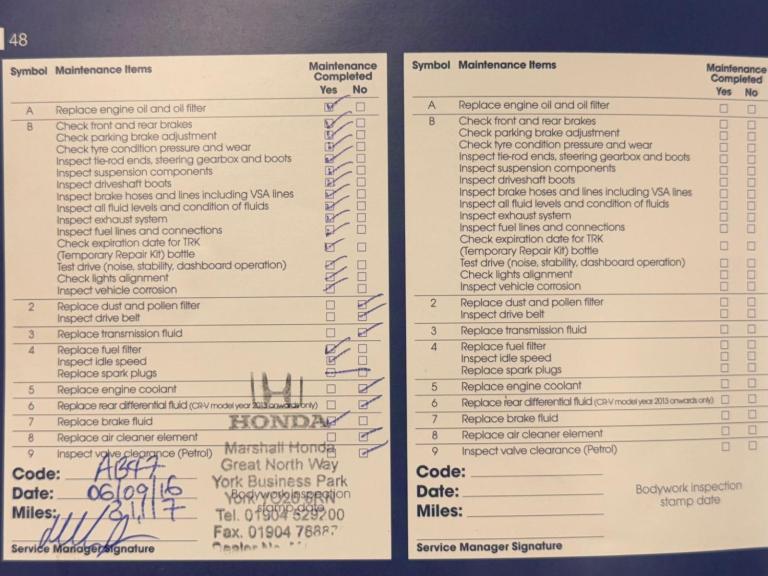 48
Symbol Maintenance Items Maintenance Completed
Yes No
A Replace engine oil and oil filter
B Check front and rear brakes
Check parking brake adjustment
Check tyre condition pressure and wear
Inspect tie-rod ends, steering gearbox and boots
Inspect suspension components
Inspect driveshaft boots
Inspect brake hoses and lines including VSA lines
Inspect all fluid levels and condition of fluids
Inspect exhaust system
Inspect fuel lines and connections
Check expiration date for TRK
(Temporary Repair Kit) bottle
Test drive (noise, stability, dashboard operation)
Check lights alignment
Inspect vehicle corrosion
2 Replace dust and pollen filter
Inspect drive belt
3 Replace transmission fluid
4 Replace fuel filter
Inspect idle speed
Replace spark plugs
5 Replace engine coolant
6 Replace rear differential fluid (CR-V model year 2013 onwards only)
7 Replace brake fluid
8 Replace air cleaner element
9 Inspect valve clearance (Petrol)
HONDA
Marshall Honda
Great North Way
York Business Park
York YO26 6RN
Tel. 01904 529200
Fax. 01904
Bodywork inspection
stamp date
Code: AB47
Date: 06/09/16
Miles: 31117
Service Manager Signature
Symbol Maintenance Items Maintenance Completed
Yes No
A Replace engine oil and oil filter
B Check front and rear brakes
Check parking brake adjustment
Check tyre condition pressure and wear
Inspect tie-rod ends, steering gearbox and boots
Inspect suspension components
Inspect driveshaft boots
Inspect brake hoses and lines including VSA lines
Inspect all fluid levels and condition of fluids
Inspect exhaust system
Inspect fuel lines and connections
Check expiration date for TRK
(Temporary Repair Kit) bottle
Test drive (noise, stability, dashboard operation)
Check lights alignment
Inspect vehicle corrosion
2 Replace dust and pollen filter
Inspect drive belt
3 Replace transmission fluid
4 Replace fuel filter
Inspect idle speed
Replace spark plugs
5 Replace engine coolant
6 Replace rear differential fluid (CR-V model year 2013 onwards only)
7 Replace brake fluid
8 Replace air cleaner element
9 Inspect valve clearance (Petrol)
Code:
Date:
Miles:
Bodywork inspection
stamp date
Service Manager Signature